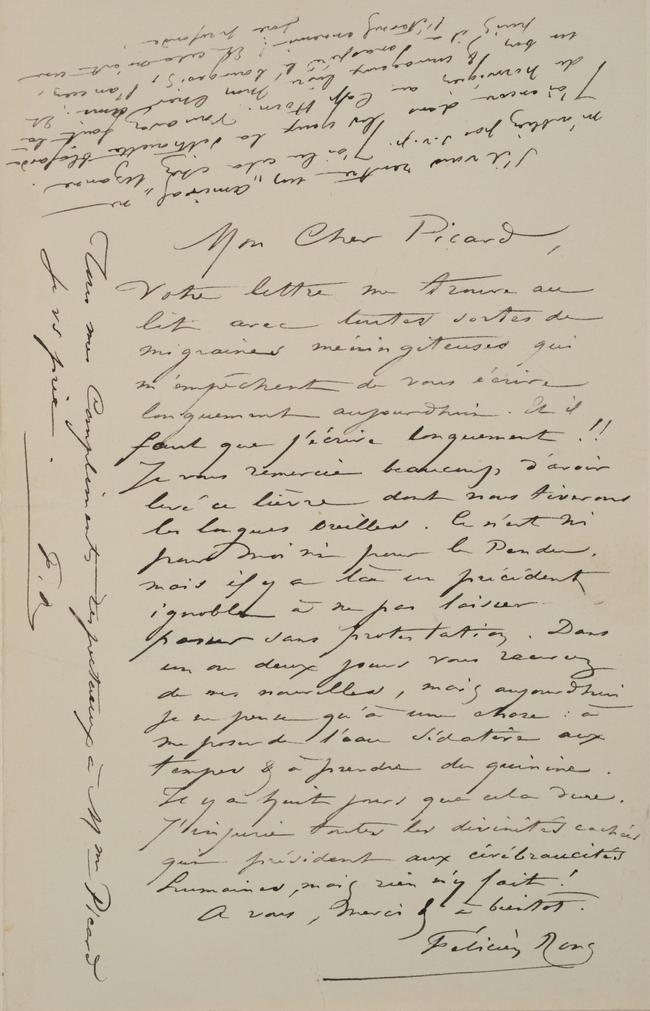 Mon Cher Picard,
Votre lettre me trouve au
lit avec toutes sortes de
migraines méningiteuses qui
m'empêchent de vous écrire
longuement aujourdhui. Et il
faut que j'écrive longuement !!
Je vous remercie beaucoup d'avoir
levé ce lièvre dont nous tirerons
les longues oreilles. Ce n'est ni
pour moi ni pour le Pendu,
mais il y a là un précédent
ignoble à ne pas laisser
passer sans protestation. Dans
un ou deux jours vous recevrez
de mes nouvelles, mais aujourdhui
je ne pense qu'à une chose : à
me poser de l'eau sédative aux
tempes & à prendre du quinine.
Il y a huit jours que cela dure.
J'injurie toutes les divinités cachées
qui président aux cérébraucités
humaines, mais rien n'y fait !
A vous, merci & à bientôt.
Félicien Rops
Tous mes Compliments respectueux à Mme Picard
je vs prie.
F. R
S'il vous rentre un „amiral" ne
m'oubliez pas s.v.p. J'ai lu cela chez
J'ai encore dans les yeux la silhouette
de au Cap Horn. Vous avez
mon cher ami : Et
un bon